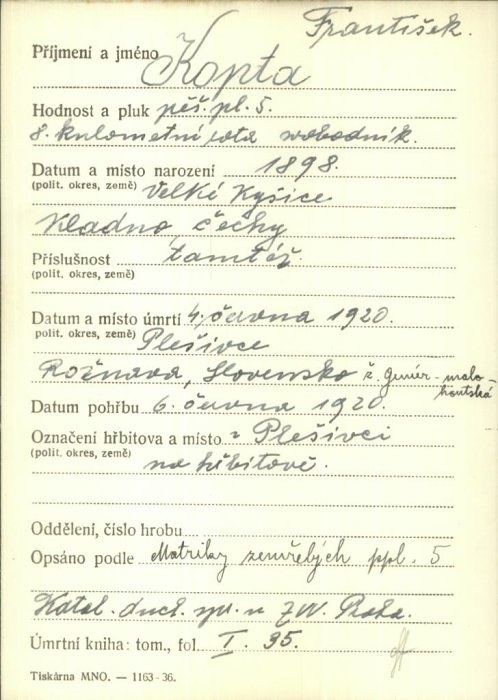 František.
Příjmení a jméno Kopta
Hodnost a pluk pěš. pl. 5.
8. kulometní rota svobodník.
Datum a místo narození 1898.
(polit. okres, země) Velké Kyšice
Kladno, Čechy
Příslušnost tamtéž.
(polit. okres, země)
Datum a místo úmrtí 4. června 1920.
(polit. okres, země) Plešivce
Rožnava, Slovensko ž. gemer-malo-
hontská
Datum pohřbu 6. června 1920.
Označení hřbitova a místo v Plešivci
(polit. okres, země) na hřbitově.
Oddělení, číslo hrobu
Opsáno podle Matriky zemřelých ppl. 5
Katol. duch. spr. u ZVV. Praha.
Úmrtní kniha: tom., fol. I. 35.
Tiskárna MNO. — 1163-36.